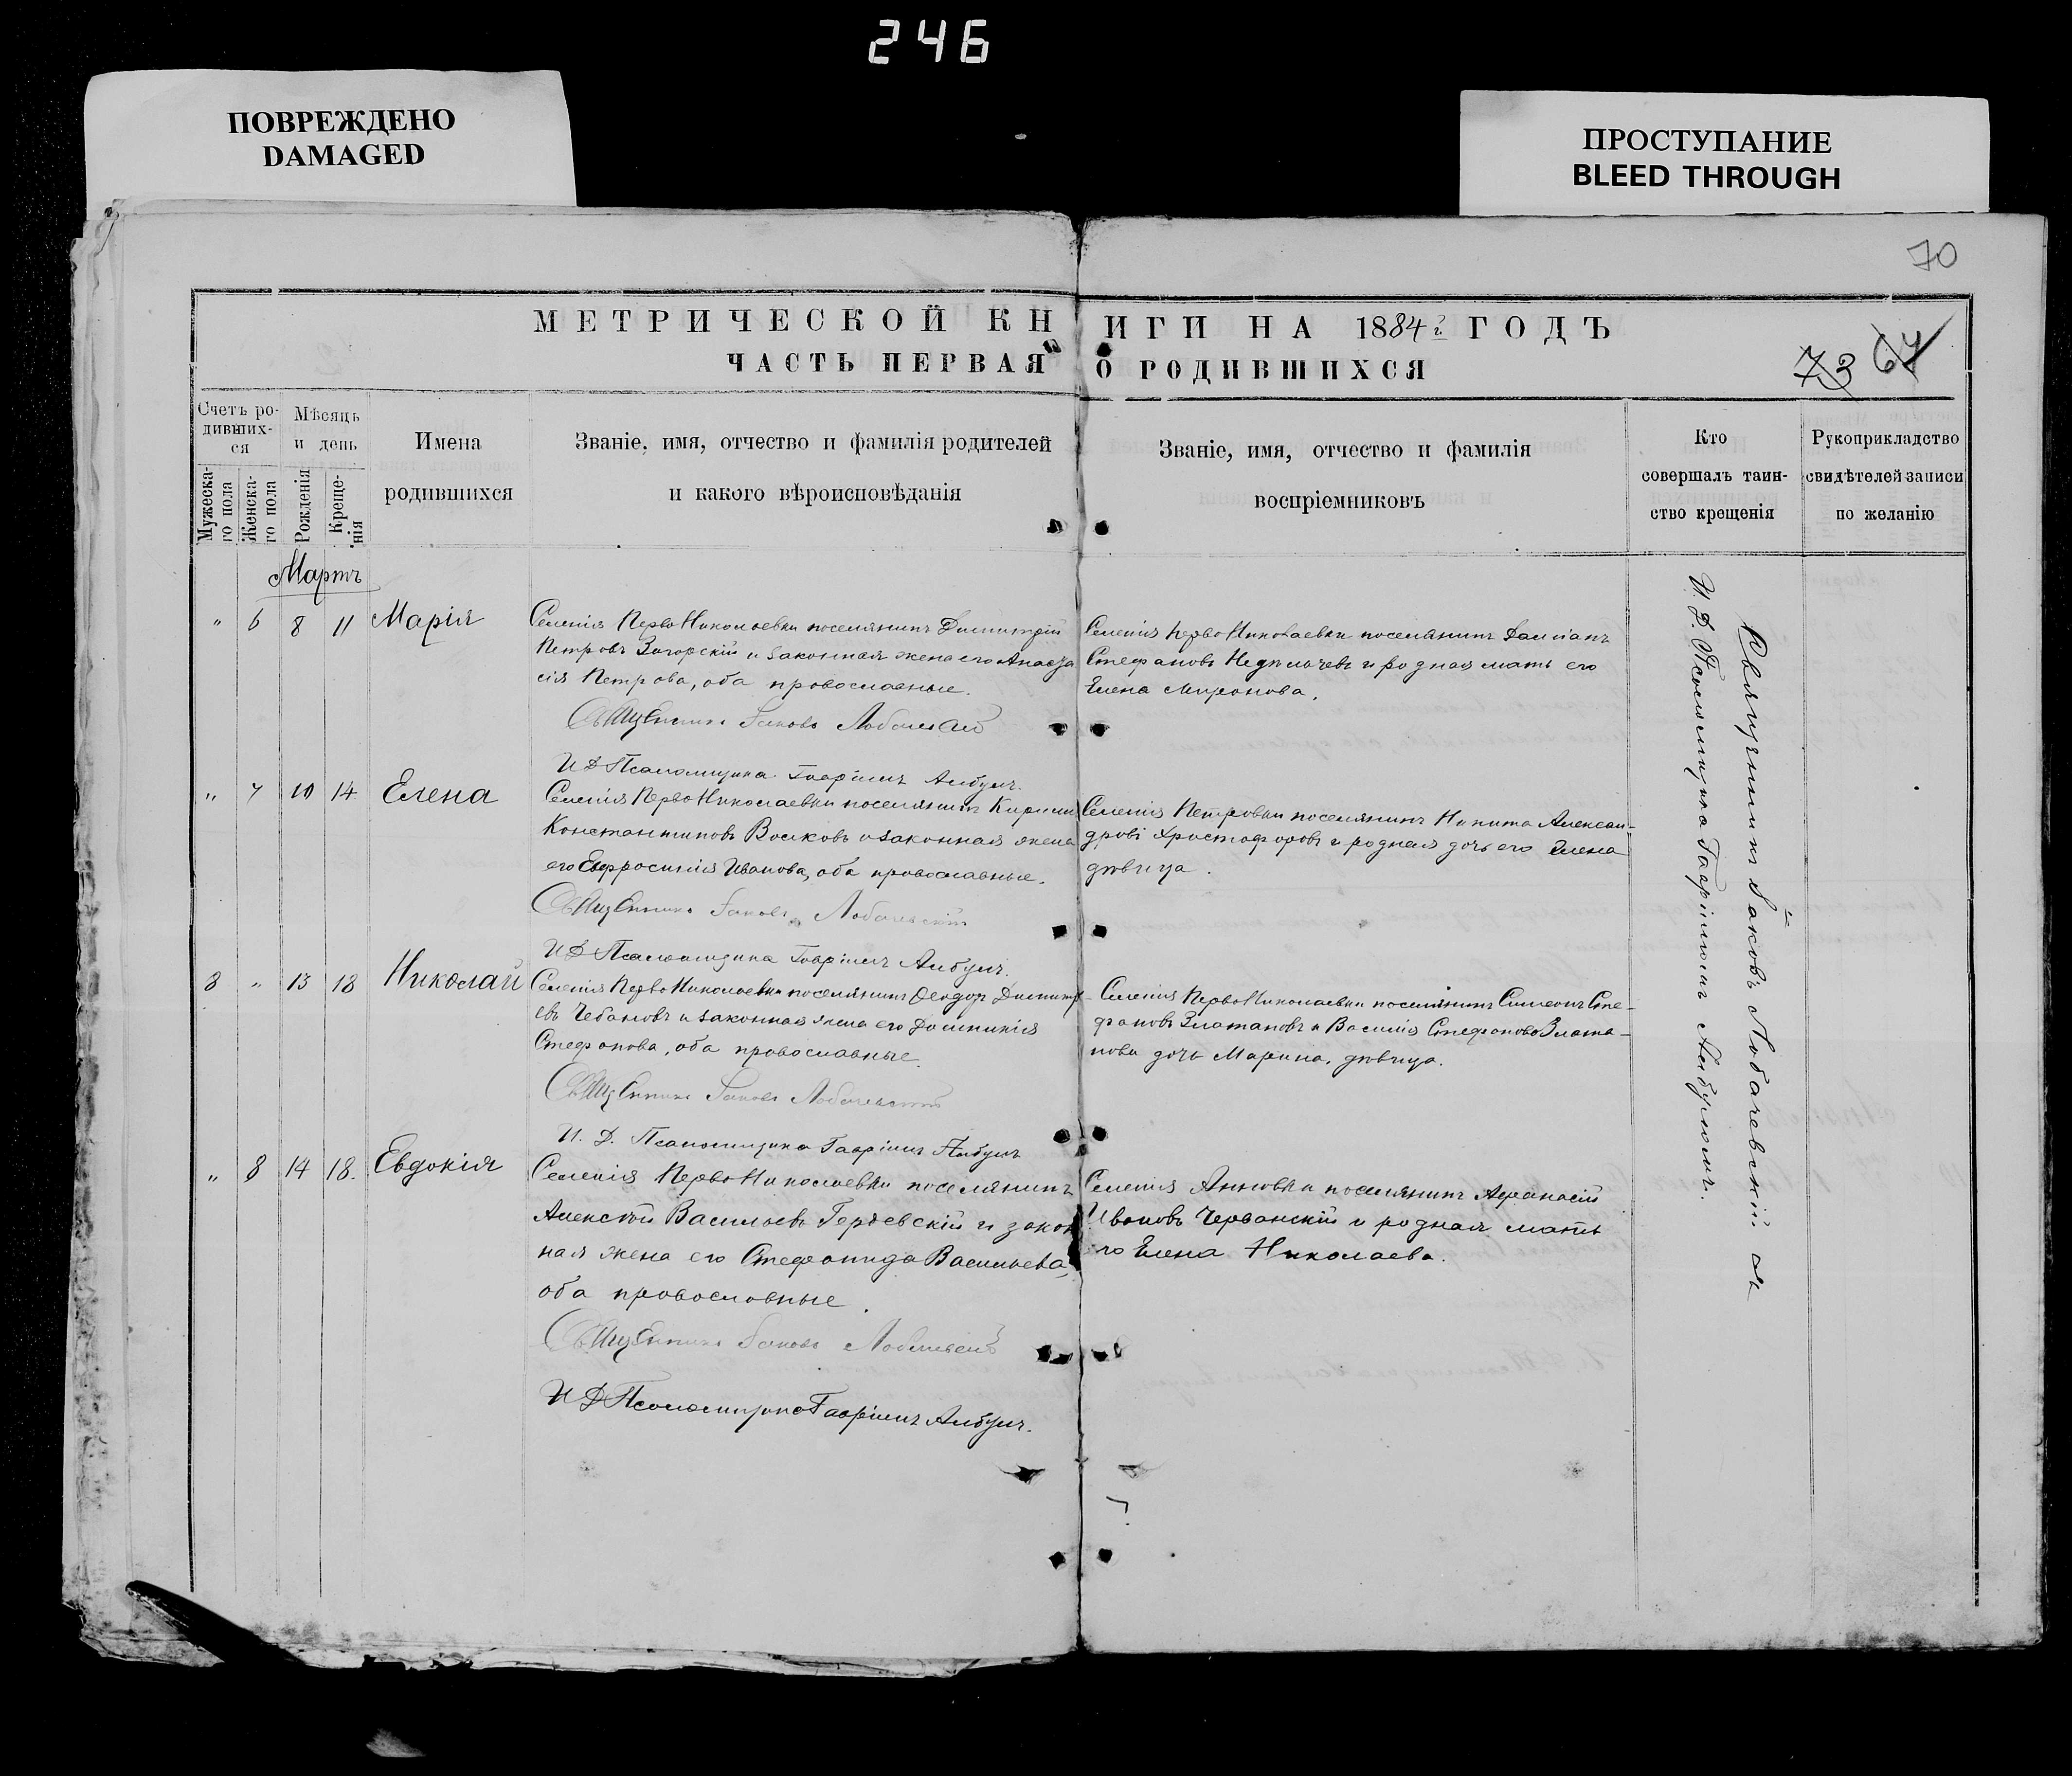 246
ПОВРЕЖДЕНО
DAMAGED
ПРОСТУПАНИЕ
BLEED THROUGH
70
МЕТРИЧЕСКОЙ КНИГИ НА 1884 г. ГОДЪ
ЧАСТЬ ПЕРВАЯ О РОДИВШИХСЯ
73 67
Счетъ ро-
дивших-
ся
Мужеска-
го пола
Женска-
го пола
Мѣсяцъ
и день
Рожденія
Креще-
нія
Имена
родившихся
Званіе, имя, отчество и фамилія родителей
и какого вѣроисповѣданія
Званіе, имя, отчество и фамилія
воспріемниковъ
Кто
совершалъ таин-
ство крещенія
Рукоприкладство
свидѣтелей записи
по желанію
Мартъ
" 6 8 11 Марія
Селенія Перво Николаевки поселянинъ Димитрій
Петровъ Загорскій и законная жена его Анаста
сія Петрова, оба православные.
Священникъ Іаковъ Лобачевскій
И Д Псаломщика Гавріилъ Анбулъ.
Селенія Перво Николаевки поселянинъ Даміанъ
Стефановъ и родная мать его
Елена Миронова.
" 7 10 14 Елена
Селенія Перво Николаевки поселянинъ Кириллъ
Константиновъ Волковъ и законная жена
его Евфросинія Иванова, оба православные.
Священникъ Іаковъ Лобачевскій
И Д Псаломщика Гавріилъ Анбулъ.
Селенія Петровки поселянинъ Никита Алексан-
дровъ Христофоровъ и родная дочь его Елена
дѣвица.
8 " 13 18 Николай
Селенія Перво Николаевки поселянинъ Ѳеодоръ Димитрі-
евъ Чебановъ и законная жена его Доминикія
Стефанова, оба православные.
Священникъ Іаковъ Лобачевскій
И. Д. Псаломщика Гавріилъ Анбулъ
Селенія Перво Николаевки поселянинъ Симеонъ Сте-
фановъ Златановъ и Василія Стефанова Злата-
нова дочь Марина, дѣвица.
" 8 14 18. Евдокія
Селенія Перво Николаевки поселянинъ
Алексѣй Васильевъ и закон
ная жена его Стефанида Васильева,
оба православные.
Священникъ Іаковъ Лобачевскій
И Д Псаломщика Гавріилъ Анбулъ.
Селенія Анновки поселянинъ Афанасій
Ивановъ Червански и родная мать
его Елена Николаева.
Священникъ Іаковъ Лобачевскій съ
И. Д. Псаломщика Гавріиломъ Анбуломъ.